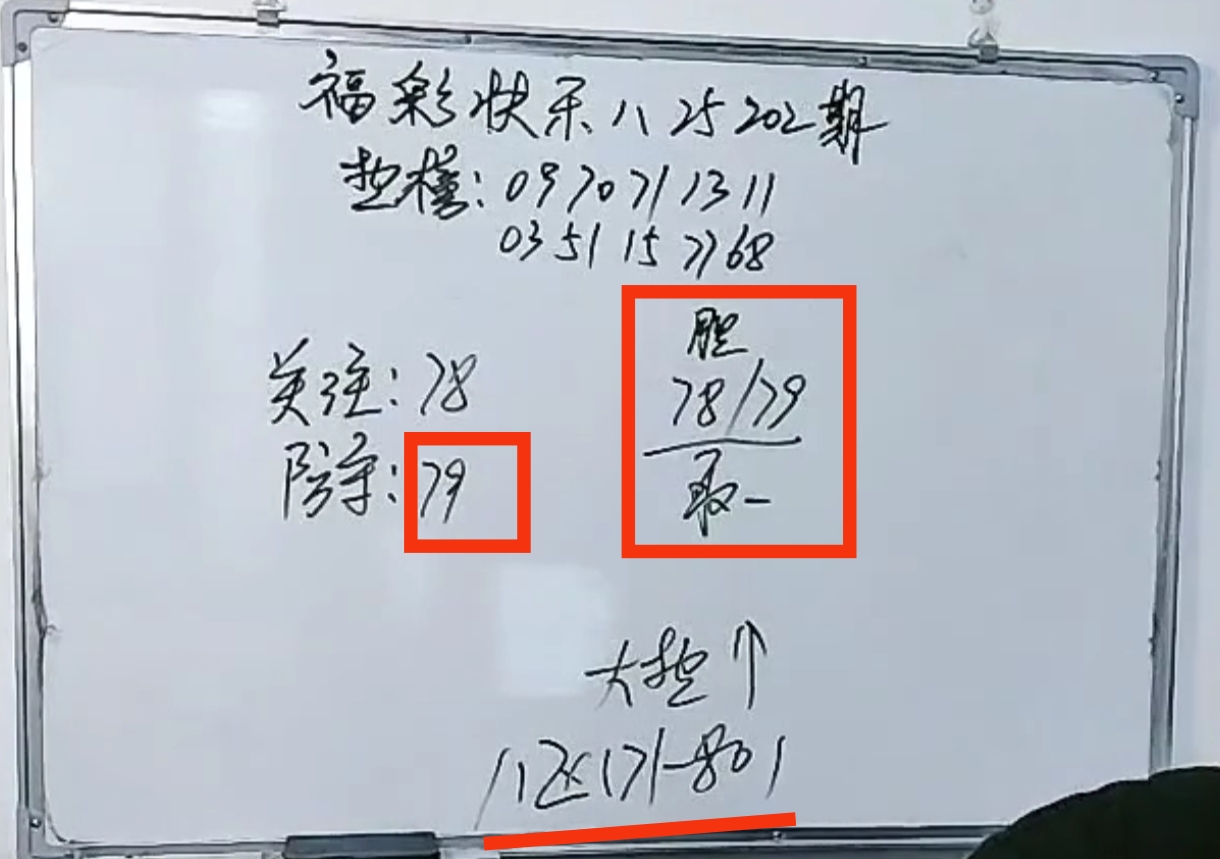 福彩快乐八25202期
控榜：0970711311
0351157768
关注：78
防守：79
胆
78/79
取一
大控↑
八区(71-80)